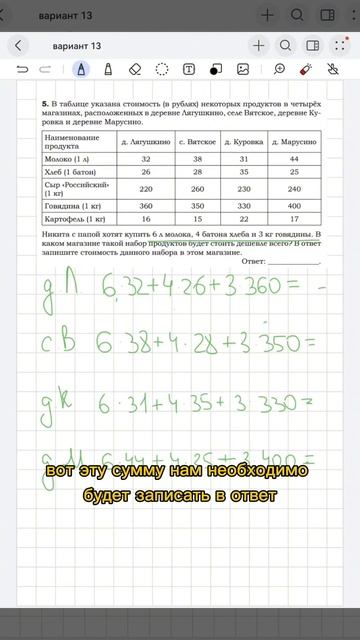 вариант 13
вариант 13
5. В таблице указана стоимость (в рублях) некоторых продуктов в четырёх
магазинах, расположенных в деревне Лягушкино, селе Вятское, деревне Ку-
ровка и деревне Марусино.
Наименование продукта д. Лягушкино с. Вятское д. Куровка д. Марусино
Молоко (1 л) 32 38 31 44
Хлеб (1 батон) 26 28 35 25
Сыр «Российский» (1 кг) 220 260 230 240
Говядина (1 кг) 360 350 330 400
Картофель (1 кг) 16 15 22 17
Никита с папой хотят купить 6 л молока, 4 батона хлеба и 3 кг говядины. В
каком магазине такой набор продуктов будет стоить дешевле всего? В ответ
запишите стоимость данного набора в этом магазине.
Ответ:
д Л 6·32+4·26+3·360=
с В 6·38+4·28+3·350=
д К 6·31+4·35+3·330=
д М 6·44+4·25+3·400=
вот эту сумму нам необходимо
будет записать в ответ